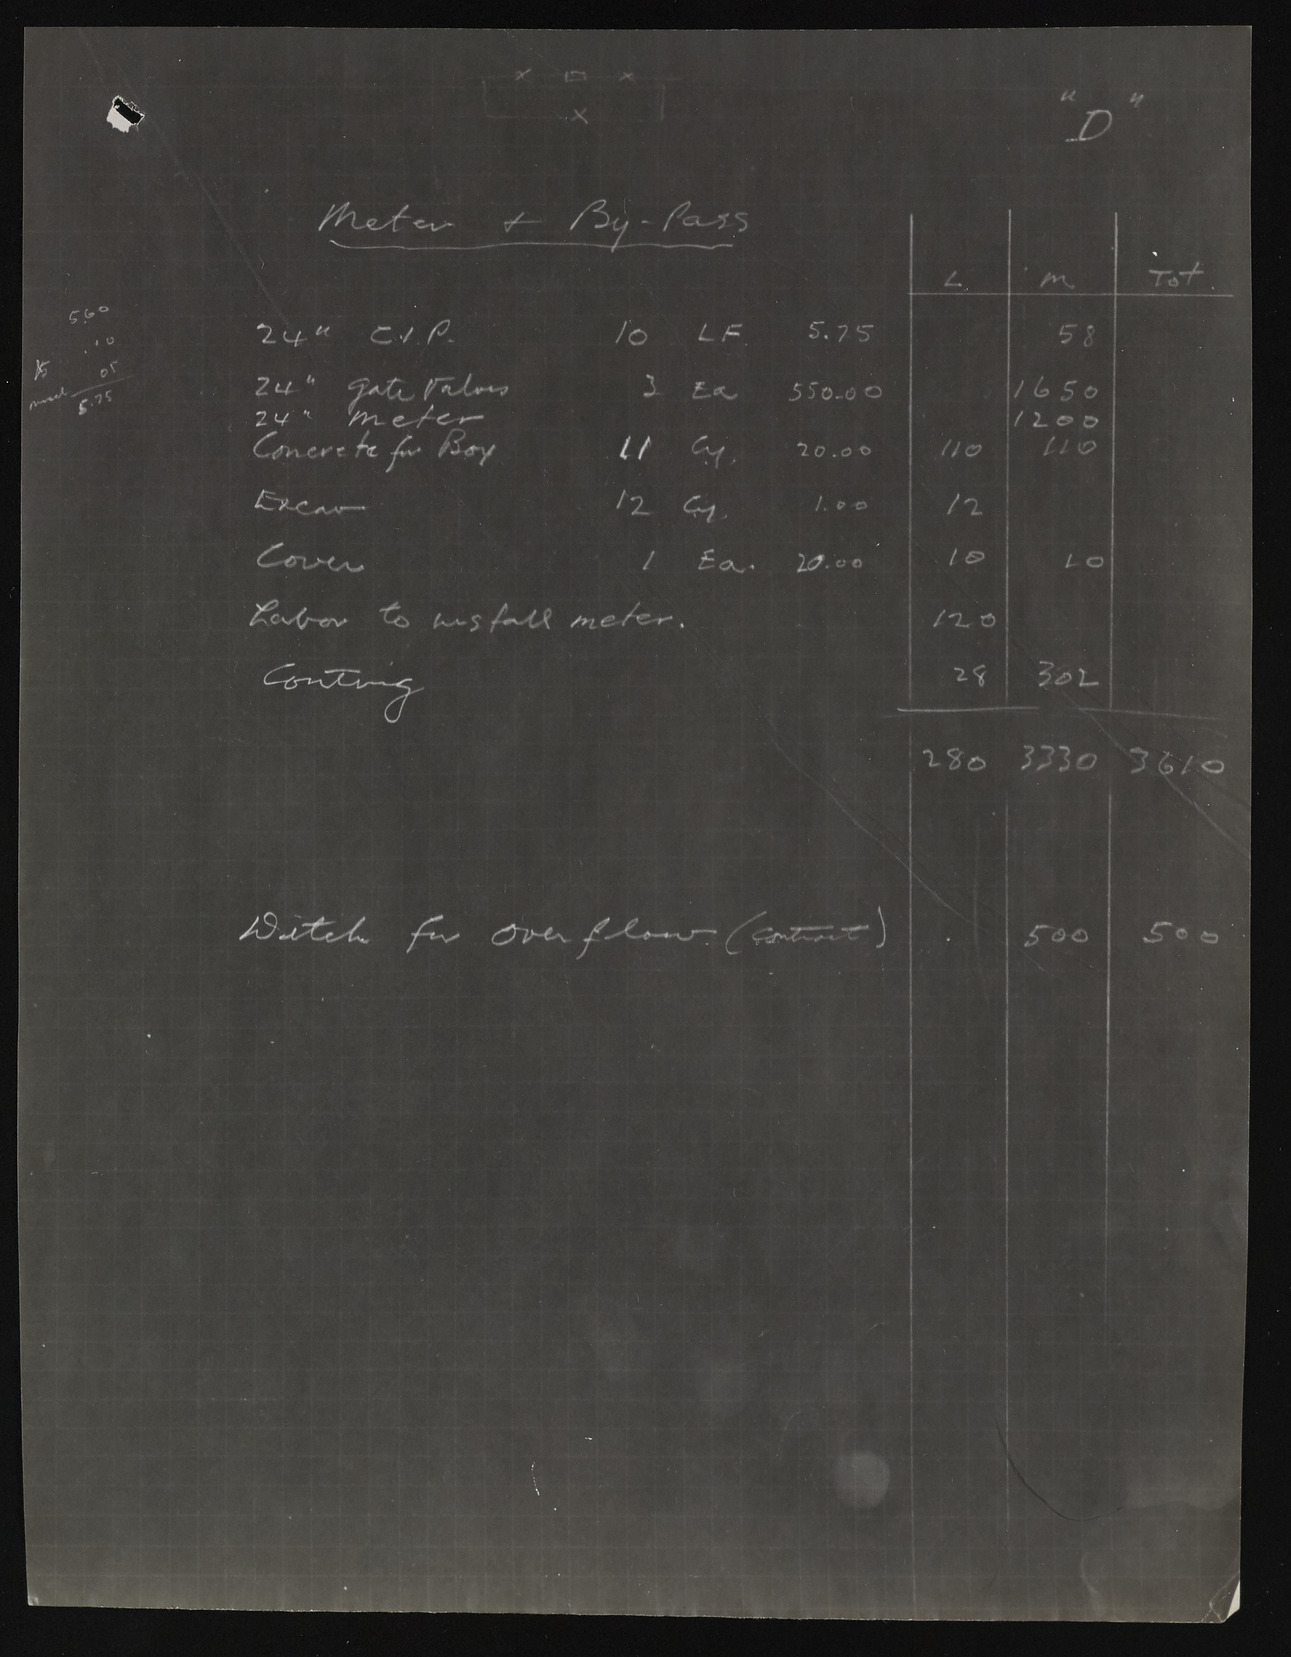 "D"
Meter + By-Pass
L M Tot.
5.60
.10
05
5.75
24" C.I.P. 10 LF. 5.75 58
24" gate Valves 3 Ea 550.00 1650
24" meter 1200
Concrete for Box 11 Cy. 20.00 110 110
Excav 12 Cy. 1.00 12
Cover 1 Ea. 20.00 10 10
Labor to install meter. 120
Conting 28 302
280 3330 3610
Ditch for overflow (contract) 500 500